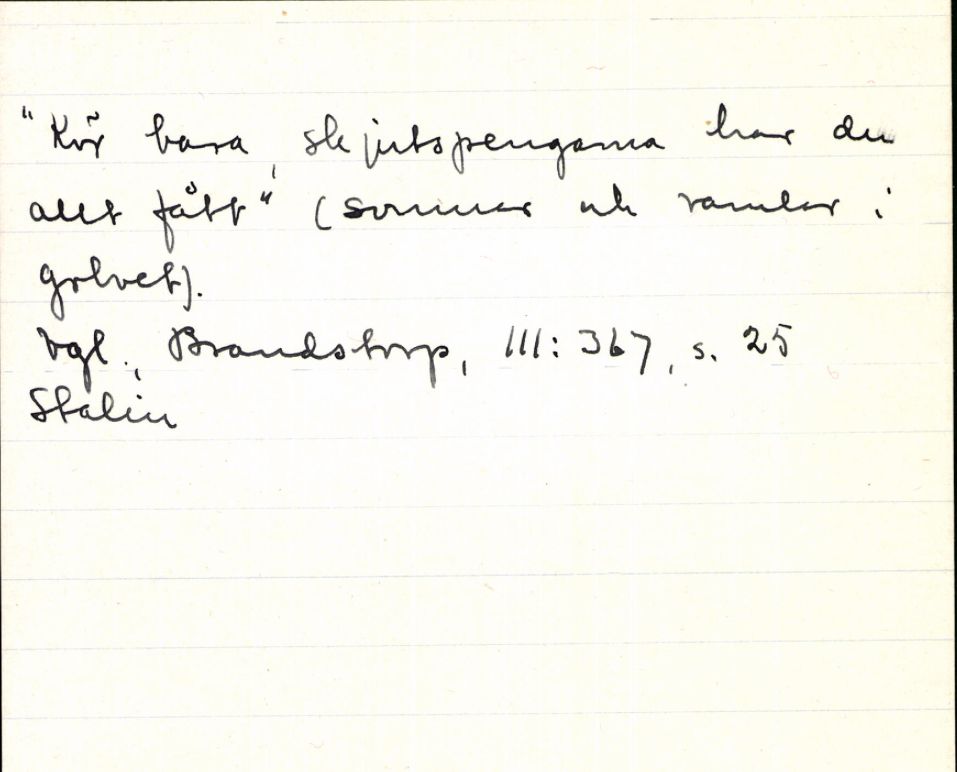 "Kör bara, skjutspengarna har du
allt fått" (somnar och ramlar i
golvet).
Vgl., Brandstorp, III: 367, s. 25
Stalin